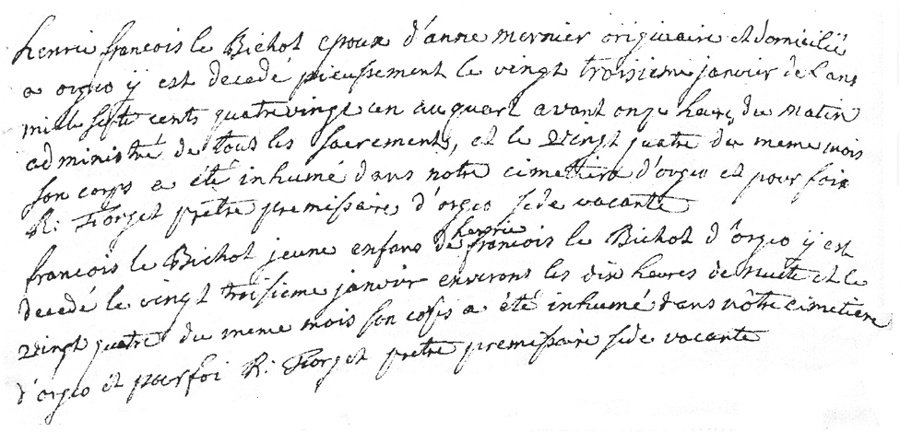 henri francois le Bichot epoux d'anne mernier originaire et domicilié
a orgeo ÿ est decedé pieusement le vingt troisieme janvier de l'ans
mille sept cents quatrevingt un au quart avant onze heure du matin
administré de tous les sacrements, et le vingt quatre du meme mois
son corps a été inhumé dans notre cimettiere d'orgeo et pour foix
R: Forget prêtre premissaire d'orgeo sede vacante
francois le Bichot jeune enfans de henrie francois le Bichot d'orgeo ÿ est
decedé le vingt troisieme janvir environs les dix heures de nuite et le
vingt quatre du meme mois son cops a été inhumé dans nôtre cimetiere
d'orgeo et pour foi R: Forget pretre premissaire sede vacante